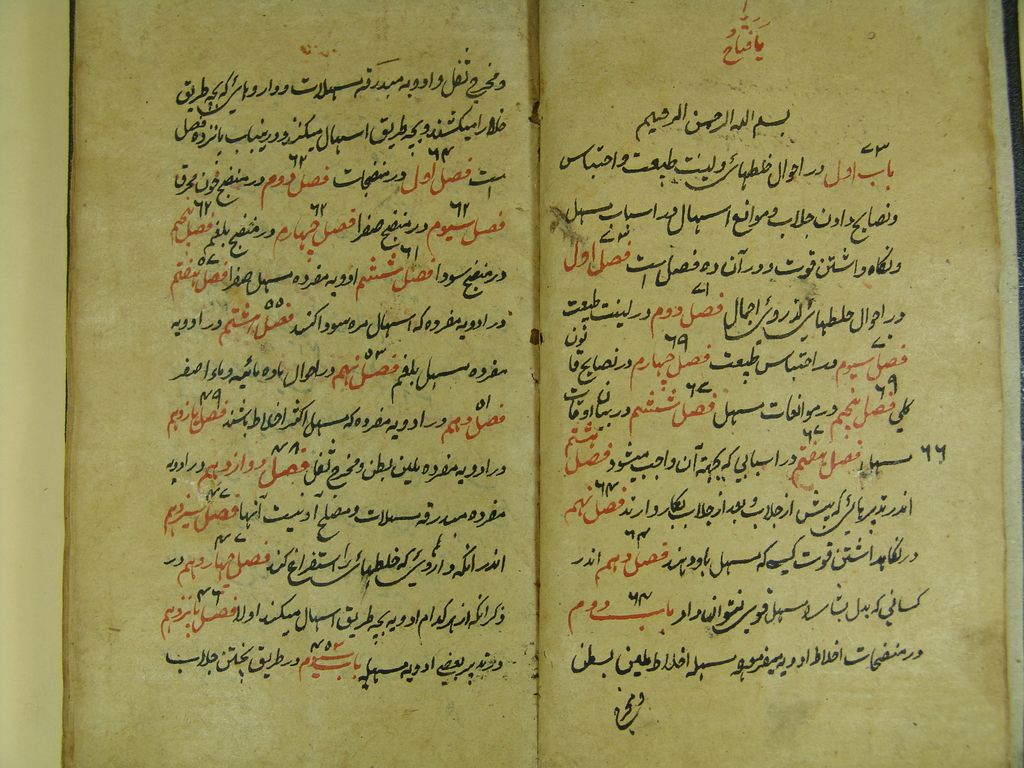 یا فتاح
بسم الله الرحمن الرحیم
باب اول در احوال خلطهای و لینت طبیعت و احتباس
و نصایح دادن جلاب و موانع اسهال و اسباب مسهل
و نگاه داشتن قوت و در آن ده فصل است فصل اول
در احوال خلطهای از روی اجمال فصل دوم در لینت طبیعت
فصل سیوم در احتباس طبیعت فصل چهارم در نصایح قانون
کلی فصل پنجم در موانعات مسهل فصل ششم در بیان اوقات
۶۶ مسهل فصل هفتم در اسبابی که بجهة آن واجب میشود فصل هشتم
اندر تدبیرهائی که پیش از جلاب و بعد از جلاب بکار دارند فصل نهم
در نگاهداشتن قوت کسی که مسهل باو دهند فصل دهم اندر
کسانی که بدل مسهل قوی نتوان داد باب دوم
در منضجات اخلاط و ادویه مفرده مسهله اخلاط ملین بطن
و مخرج
و مخرج ثفل و ادویه مبدرقه مسهلات و داروهای که بچه طریق
خلط را میکشند و بچه طریق اسهال میکند و درینباب پانزده فصل
است فصل اول در منضجات فصل دوم در منضج خون محرقا
فصل سیوم در منضج صفرا فصل چهارم در منضج بلغم فصل پنجم
در منضج سودا فصل ششم ادویه مفرده مسهل صفرا فصل هفتم
در ادویه مفرده که اسهال مره سودا کند فصل هشتم در ادویه
مفرده مسهل بلغم فصل نهم در احوال ماده مائیه و ماء اصفر
فصل دهم در ادویه مفرده که مسهل اکثر اخلاط باشند فصل یازدهم
در ادویه مفرده ملین بطن و مخرج ثفل فصل دوازدهم در ادویه
مفرده مبدرقه مسهلات و مصلح آن اذیت آنها فصل سیزدهم
اندر آنکه داروی که خلطهای را استفراغ کند فصل چهاردهم در
ذکر آنکه از هر کدام ادویه بچه طریق اسهال میکند اولا فصل پانزدهم
در تدبیر بعضی ادویه مسهله باب سیوم در طریق پختن جلاب